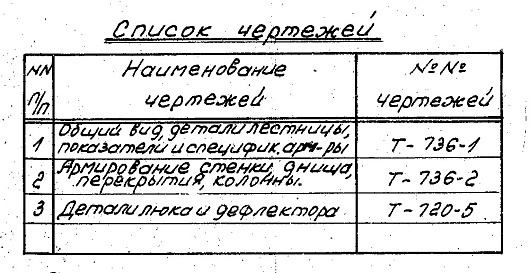 Список чертежей
NN п/п Наименование чертежей №№ чертежей
1 Общий вид, детали лестницы, показатели и специфик. арм-ры Т-736-1
2 Армирование стенки, днища, перекрытия, колонны. Т-736-2
3 Детали люка и дефлектора Т-720-5